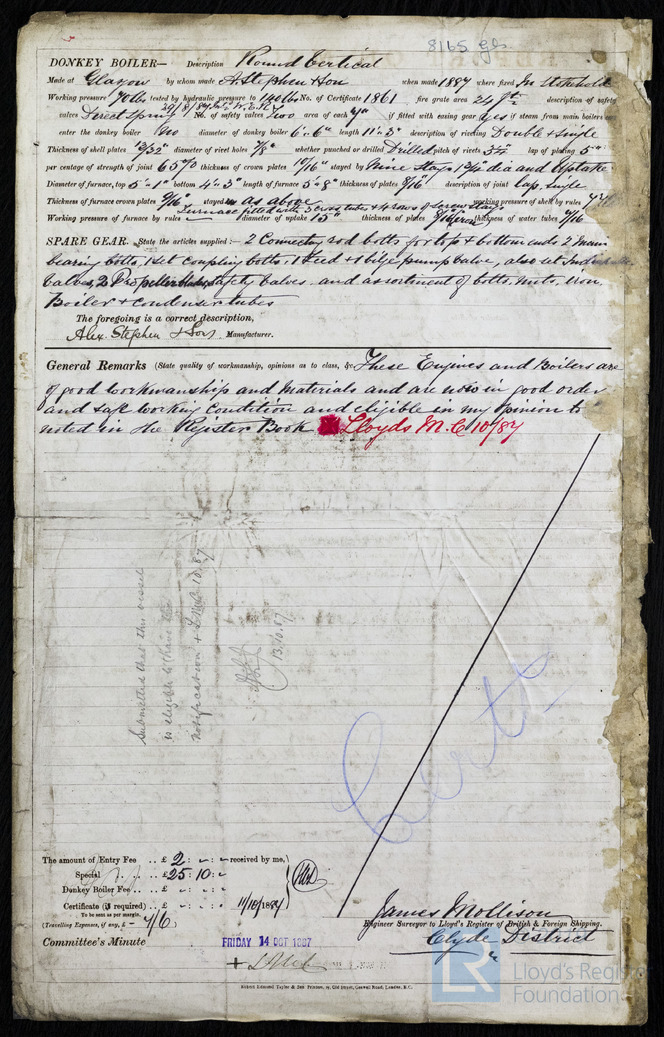 8165 gls
DONKEY BOILER— Description Round Vertical
Made at Glasgow by whom made A Stephen & Son when made 1887 where fixed In Stokehold
Working pressure 70 lbs tested by hydraulic pressure to 140 lbs No. of Certificate 1861 fire grate area 24 description of safety
valves Direct Spring No. of safety valves Two area of each if fitted with easing gear yes if steam from main boilers can
enter the donkey boiler No diameter of donkey boiler 6'.6" length 11'.3" description of riveting Double & Single
Thickness of shell plates diameter of rivet holes 7/8" whether punched or drilled Drilled pitch of rivets lap of plating 5"
per centage of strength of joint 65 % thickness of crown plates 10/16" stayed by Nine Stays dia and Uptake
Diameter of furnace, top 5'.1" bottom 4'.3" length of furnace 5'.8" thickness of plates 8/16" description of joint Lap, Single
Thickness of furnace crown plates 9/16" stayed as above working pressure of shell by rules
Furnace fitted with 3 cross tubes & 4 rows of Screw Stays
Working pressure of furnace by rules diameter of uptake 15" thickness of plates thickness of water tubes
SPARE GEAR. State the articles supplied:— 2 Connecting rod bolts for top & bottom ends 2 main
bearing bolts, 1 Set coupling bolts, 1 Feed & 1 bilge pump valve, also set
Valves, 2 Propeller blades Safety Valves, and assortment of bolts, nuts, iron,
Boiler & condenser tubes
The foregoing is a correct description,
Alex. Stephen & Sons, Manufacturer.
General Remarks (State quality of workmanship, opinions as to class, &c. These Engines and Boilers are
of good workmanship and materials and are now in good order
and safe working condition and eligible in my opinion to
noted in the Register Book Lloyds M.C 10/87
Submitted that this vessel
is eligible to have the
notification + LMC 10.87
13.10.87
Certs
The amount of Entry Fee .. £ 2 : - : - received by me,
Special .. £ 25 : 10 : -
Donkey Boiler Fee .. £ - : - : -
Certificate (if required) .. £ - : - : - 11/10/1887
To be sent as per margin.
(Travelling Expenses, if any, £ - 4/6)
James Mollison
Engineer Surveyor to Lloyd's Register of British & Foreign Shipping.
Clyde District
Committee's Minute FRIDAY 14 OCT 1887
+ LMC
Robert Edmund Taylor & Son Printers, 19, Old Street, Goswell Road, London, E.C.
LR Lloyd's Register
Foundation